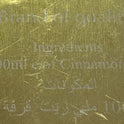 Brand of quality
Ingredients
100ml of Cinnamon
المكونات
100 ملي زيت قرفة